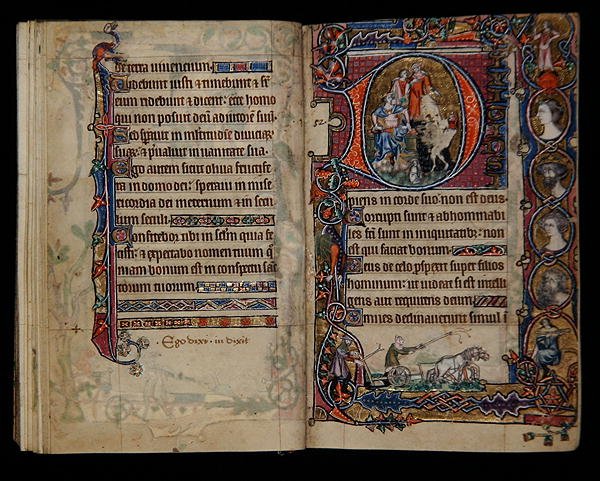 de terra uiuencium
Uidebunt iusti et timebunt et sr
eum ridebunt et dicent: ecce homo
qui non posuit deū adiutorē suū
Sed sperauit in diuiciarum
suarꝫ: et ualuit in uanitate sua
Ego autem sicut oliua
ra in domo dei: speraui in mise
ricordia dei in eternum et in secu
lum seculi
Confitebor tibi in sclm quia fe
cisti: et expectabo nomen tuum qͦ
niam bonum est in conspectu sanc
torum tuorum
Ego dixi in dixit
52
D
ipiens in corde suo: non est deus
Corrupti sunt et abhominabi
les fc̄i sunt in iniquitatibꝫ: non
est qui faciat bonum
Deus de celo ꝓspexit super filios
hominum: ut uideat si est intelli
gens aut requirens deum
Omnes declinauerunt simul ī